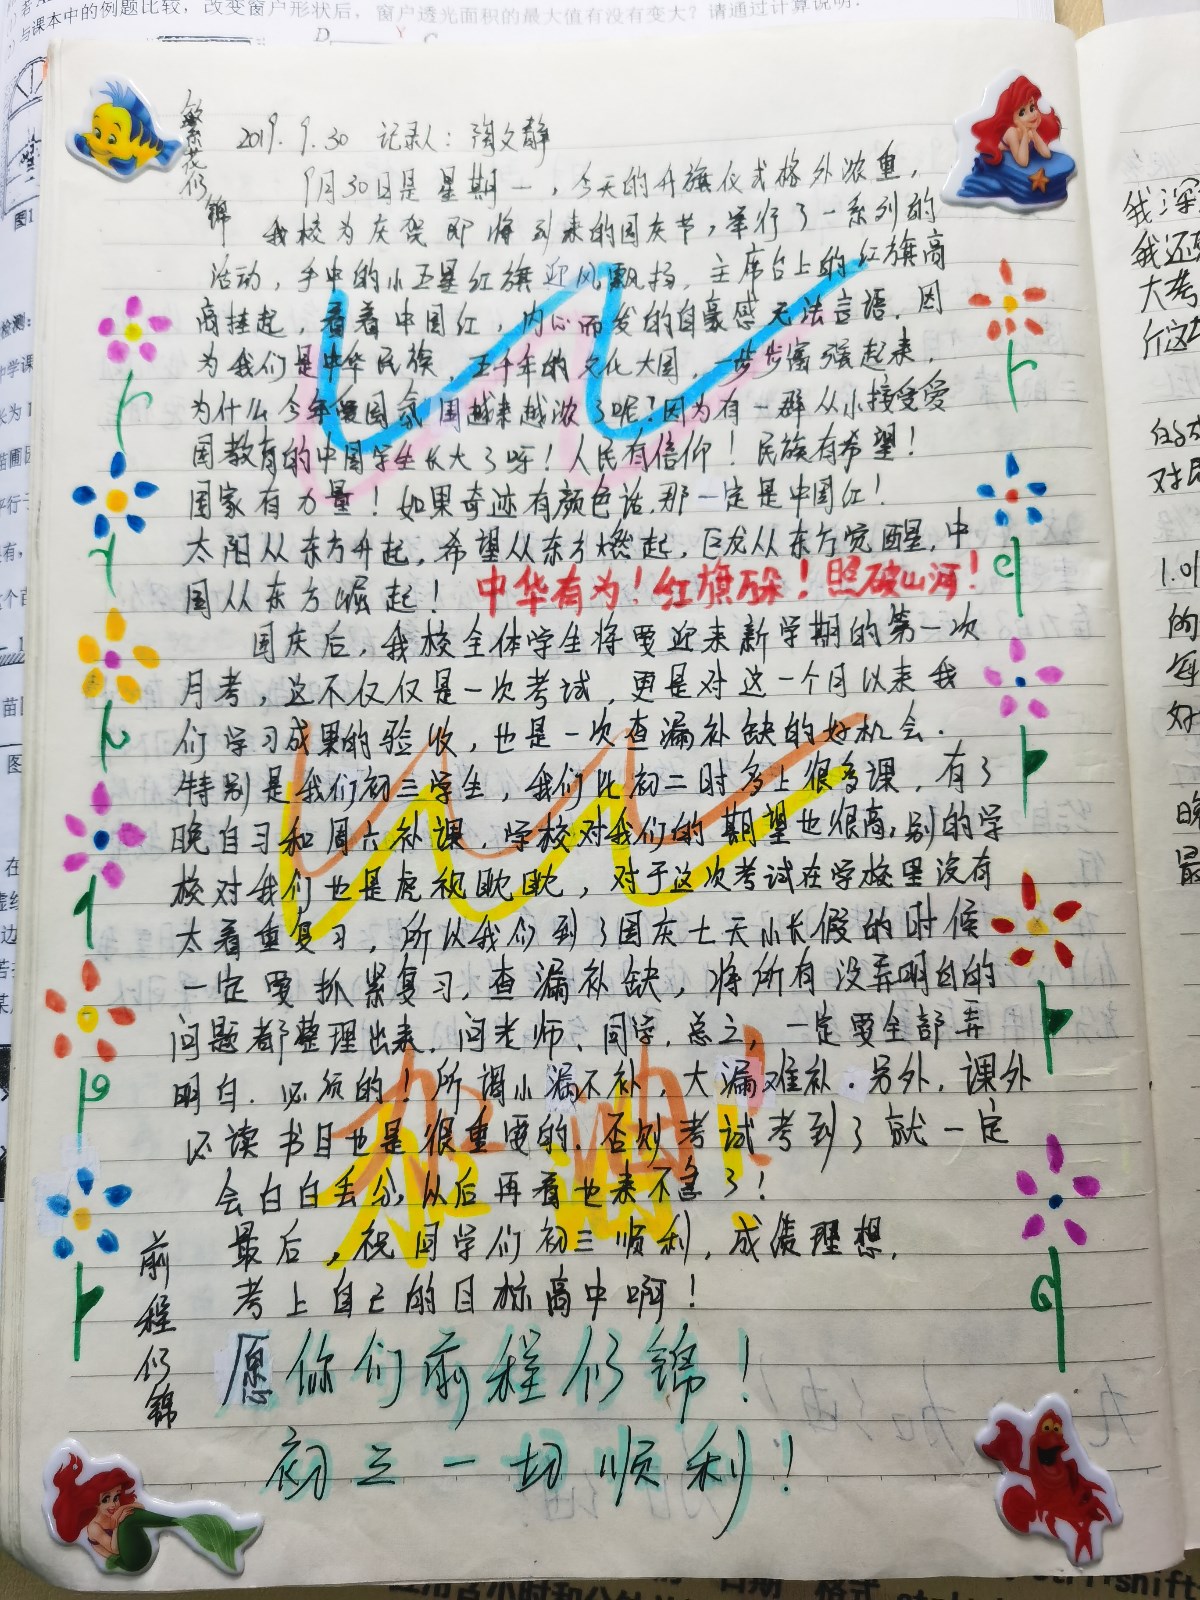 与课本中的例题比较，改变窗户形状后，窗户透光面积的最大值有没有变大？请通过计算说明.
图1
繁花似锦
2019.9.30 记录人：陶文静
9月30日是星期一，今天的升旗仪式格外浓重，
我校为庆贺即将到来的国庆节，举行了一系列的
活动，手中的小五星红旗迎风飘扬，主席台上的红旗高
高挂起，看着中国红，内心而发的自豪感无法言语，因
为我们是中华民族，五千年的文化大国，一步步富强起来，
为什么今年爱国氛围越来越浓了呢？因为有一群从小接受爱
国教育的中国学生长大了呀！人民有信仰！民族有希望！
国家有力量！如果奇迹有颜色话，那一定是中国红！
太阳从东方升起，希望从东方燃起，巨龙从东方觉醒，中
国从东方崛起！ 中华有为！红旗万朵！照破山河！
国庆后，我校全体学生将要迎来新学期的第一次
月考，这不仅仅是一次考试，更是对这一个月以来我
们学习成果的验收，也是一次查漏补缺的好机会.
特别是我们初三学生，我们比初二时多上很多课，有了
晚自习和周六补课，学校对我们的期望也很高，别的学
校对我们也是虎视眈眈，对于这次考试在学校里没有
太着重复习，所以我们到了国庆七天小长假的时候
一定要抓紧复习，查漏补缺，将所有没弄明白的
问题都整理出来，问老师、同学，总之，一定要全部弄
明白.必须的！所谓小漏不补，大漏难补.另外，课外
必读书目也是很重要的，否则考试考到了就一定
会白白丢分，以后再看也来不急了！
最后，祝同学们初三顺利，成绩理想，
考上自己的目标高中啊！
加油！
前程似锦
愿你们前程似锦！
初三一切顺利！